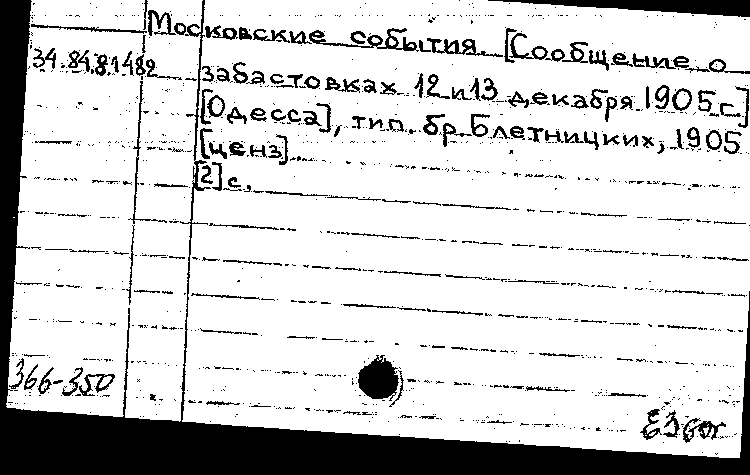 Московские события. [Сообщение о
34.84.81482
забастовках 12 и 13 декабря 1905 г.]
[Одесса], тип. бр. Блетницких, 1905
[ценз].
[2] с.
366-350